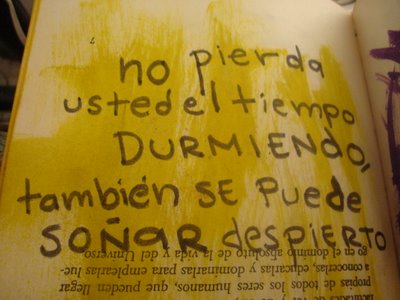 no pierda
usted el tiempo
DURMIENDO,
también SE PUEDE
SOÑAR despierto
propias de todos los seres humanos, que pueden llegar
a conocerlas, educarlas y dominarlas para emplearlas lue-
go en el dominio absoluto de la vida y del Universo